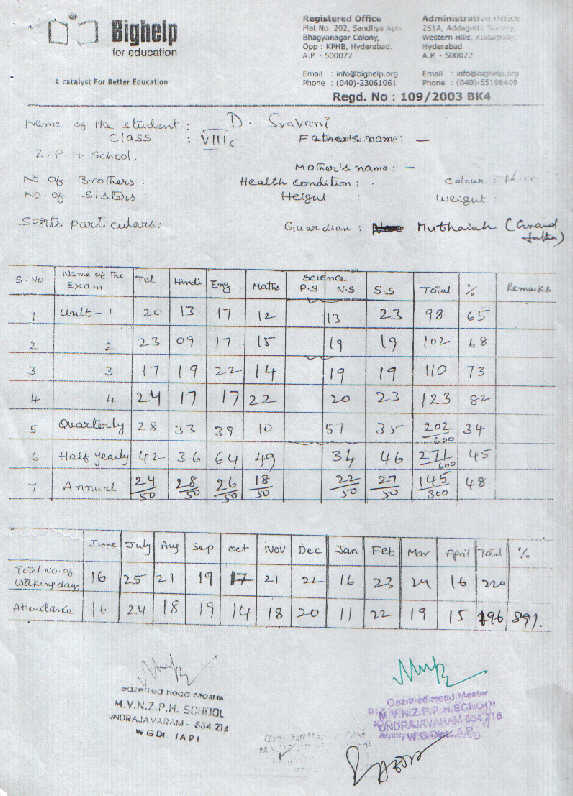 Bighelp
for education
A catalyst For Better Education
Registered Office
Plot No. 202, Sandhya Apts
Bhagyanagar Colony,
Opp : KPHB, Hyderabad.
A.P - 500072
Email : info@bighelp.org
Phone : (040)-23061961
Administrative Office
251A, Addagutta Society,
Western Hills, Kukatpally,
Hyderabad
A.P - 500072
Email : info@bighelp.org
Phone : (040)-55198409
Regd. No : 109/2003 BK4
Name of the student : D. Sravani
Class : VIII c Father's name: —
Z.P.H School. Mother's name: —
No of Brothers: Health condition: Colour :
No of Sisters Height Weight:
Guardian : Muthaiah (Grand father)
S.No Name of the Exam Tel Hindi Eng Maths Science P.S N.S S.S Total % Remarks
1 Unit - 1 20 13 17 12 13 23 98 65
2 2 23 09 17 15 19 19 102 68
3 3 17 19 22 14 19 19 110 73
4 4 24 17 17 22 20 23 123 82
5 Quarterly 28 33 39 10 51 35 202/600 34
6 Half yearly 42 36 64 49 34 46 271/600 45
7 Annual 24/50 28/50 26/50 18/50 22/50 27/50 145/300 48
June July Aug Sep Oct Nov Dec Jan Feb Mar April Total %
Total No. of Working days 16 25 21 19 17 21 22 16 23 24 16 220
Attendance 16 24 18 19 14 18 20 11 22 19 15 196 89%
Gazetted Head Master
M.V.N.Z.P.H. SCHOOL
UNDRAJAVARAM - 534 216
W.G.Dt. (A.P)
Gazetted Head Master
M.V.N.Z.P.P.H. SCHOOL
UNDRAJAVARAM - 534 216
W.G.Dist. A.P.